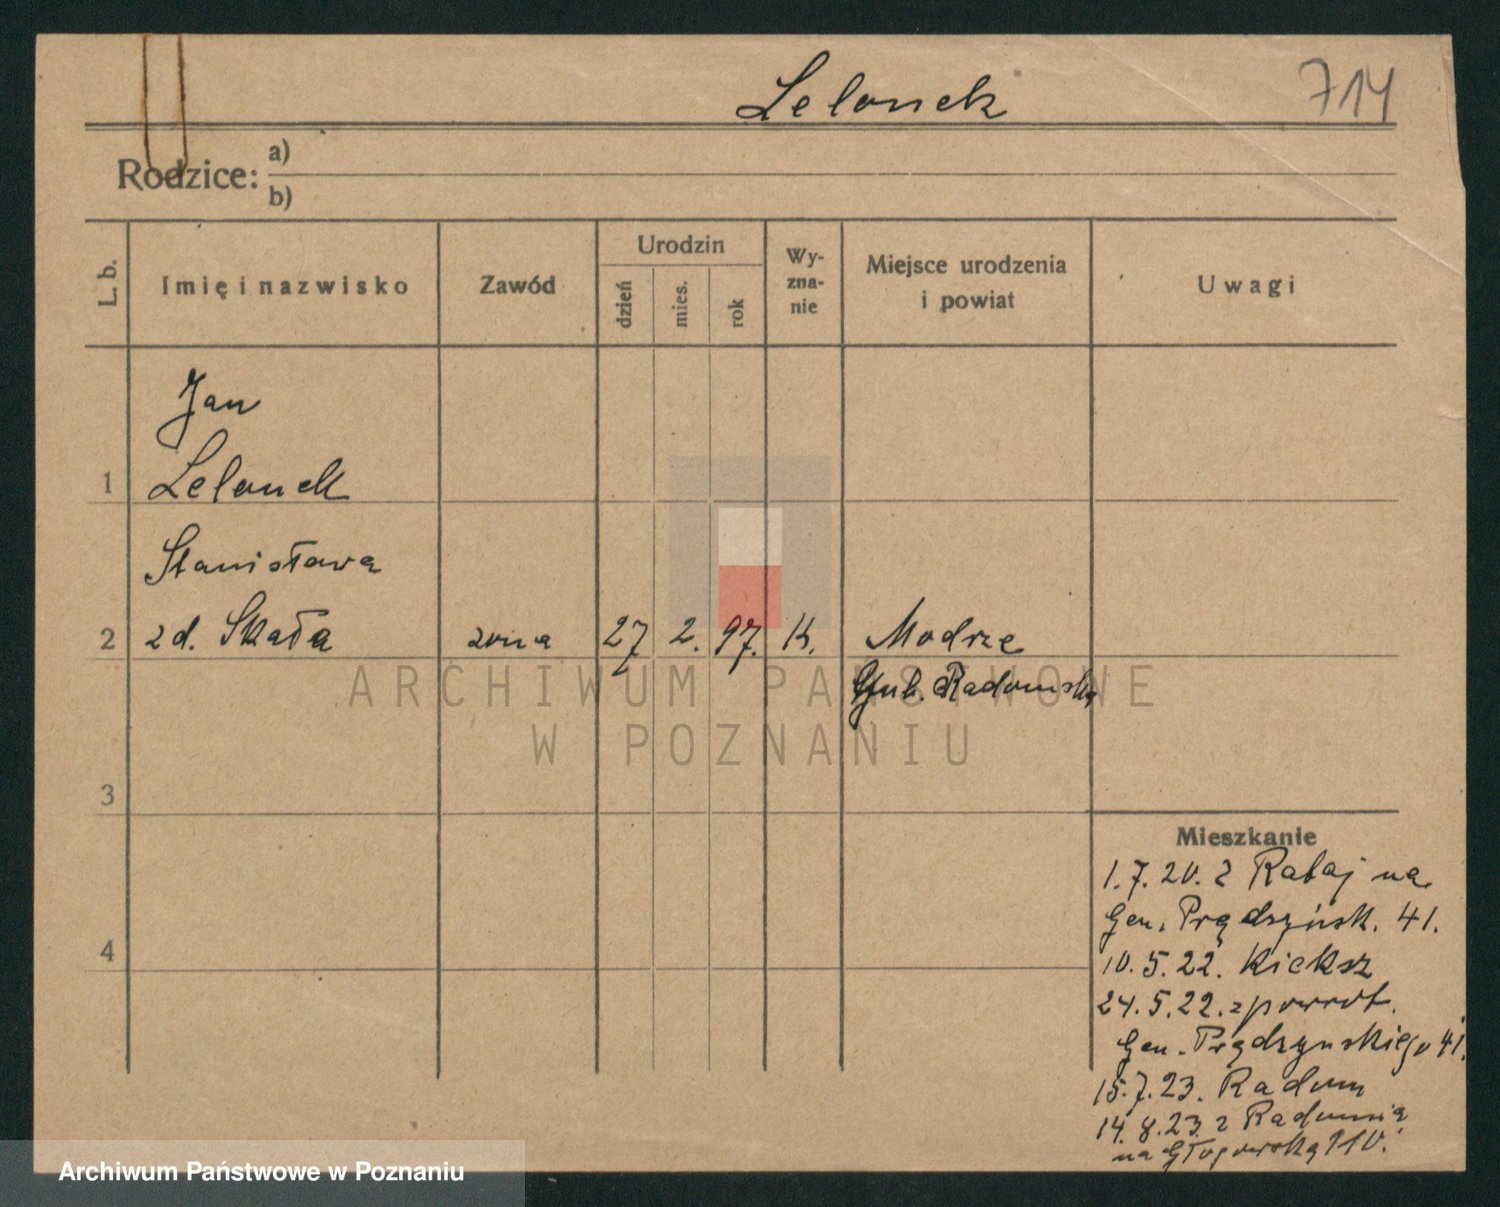 Lelonek 714
Rodzice: a)
b)
L. b. Imię i nazwisko Zawód Urodzin dzień mies. rok Wy-zna-nie Miejsce urodzenia i powiat Uwagi
Jan
1 Lelonek
Stanisława
2 zd. Skała żona 27 2. 97. K. Modrze
Gub. Radomska
ARCHIWUM PAŃSTWOWE
W POZNANIU
3
Mieszkanie
1.7.20. z Rataj na
Gen. Prądzyńsk. 41.
4
10.5.22. Kieksz
24.5.22. zpowrót.
Gen. Prądzynskiego 41.
15.7.23. Radom
14.8.23 z Radomia
na Głogowską 110.
Archiwum Państwowe w Poznaniu